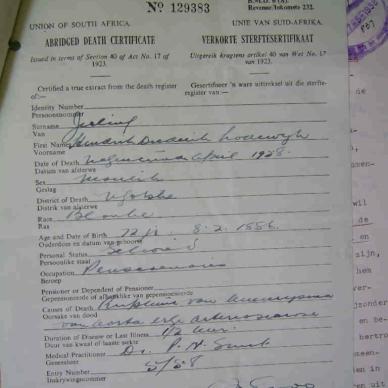 No 129383
B.M.D. 6 (a).
Revenue/Inkomste 232.
UNION OF SOUTH AFRICA. UNIE VAN SUID-AFRIKA.
ABRIDGED DEATH CERTIFICATE VERKORTE STERFTESERTIFIKAAT
Issued in terms of Section 40 of Act No. 17 of 1923. Uitgereik kragtens artikel 40 van Wet No. 17 van 1923.
Certified a true extract from the death register of:— Gesertifiseer 'n ware uittreksel uit die sterfteregister van:—
Identity Number
Persoonsnommer
Surname
Van
First Names Hendrik Diederik Lodewyk
Voorname
Date of Death April 1958
Datum van afsterwe
Sex Manlik
Geslag
District of Death
Distrik van afsterwe
Race Blanke
Ras
Age and Date of Birth 72 jr. 8.2.1886.
Ouderdom en datum van geboorte
Personal Status
Persoonlike staat
Occupation Pensioenaris
Beroep
Pensioner or Dependent of Pensioner
Gepensioneerde of afhanklike van gepensioneerde
Causes of Death van aneurysma
Oorsake van dood van aorta
Duration of Disease or Last Illness 1/2 uur.
Duur van kwaal of laaste siekte
Medical Practitioner Dr. P. H. Smit
Geneesheer
Entry Number 5/58
Inskrywingsnommer